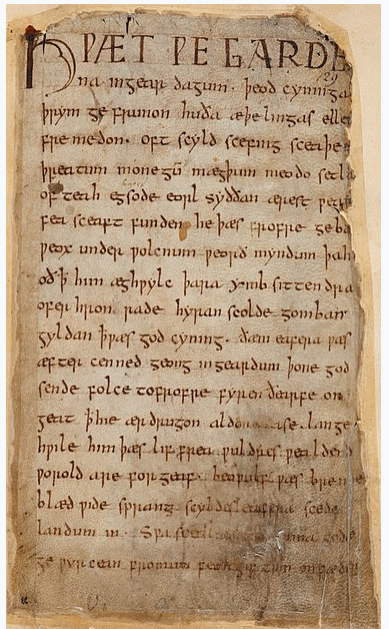 HǷÆT ǷE GARDE
na ingear dagum. þeod cyninga
þrym ge frunon huða æþelingas elle
fre medon. oft scyld scefing sceaþe
þreatum monegū mægþum meodo setla
of teah egsode eorl syððan ærest
fea sceaft funden he þæs frofre geba
ƿeox under ƿolcnum ƿeorð myndum þah
oð ꝥ him æghƿylc þara ymb sittendra
ofer hron rade hyran scolde gomban
gyldan ꝥ ƿæs god cyning. ðæm eafera ƿæs
æfter cenned geong in geardum þone god
sende folce tofrofre fyren ðearfe on
geat ꝥ hie ær drugon aldor ase. lange
hƿile him þæs lif frea ƿuldres ƿealdend
ƿorold are for geaf. beoƿulf ƿæs breme
blæd ƿide sprang scyldes eafera scede
landum in. Sƿa
ge ƿyrcean fromum feoh giftum on fæder